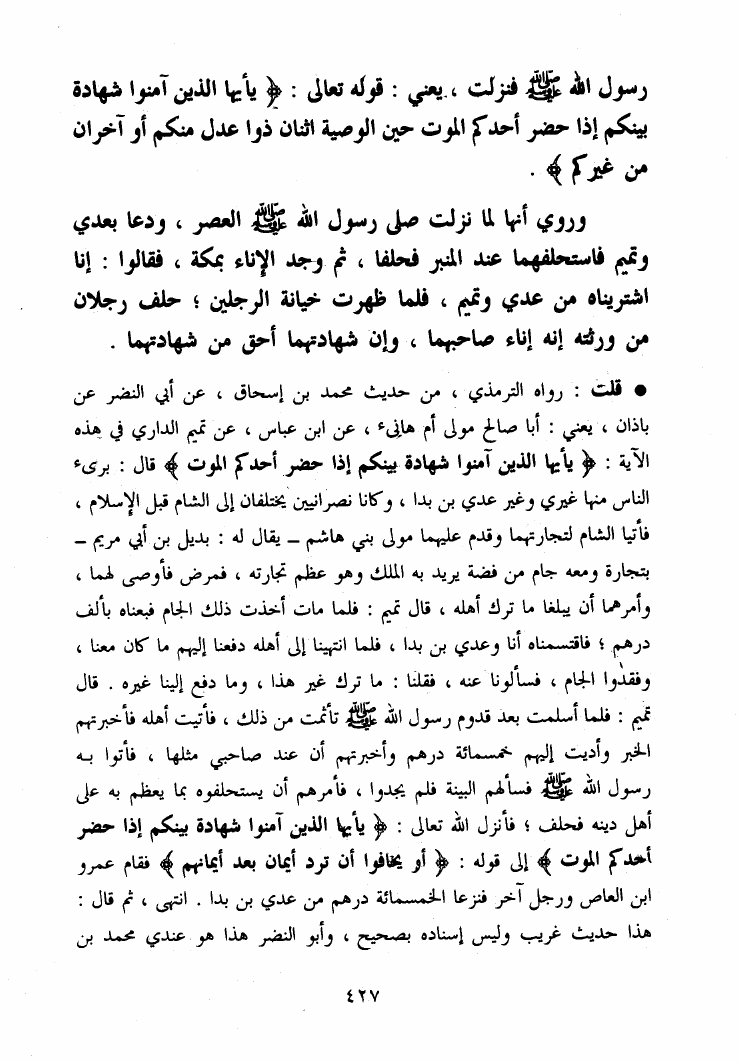 رسول الله ﷺ فنزلت ، يعني : قوله تعالى : ﴿ يأيها الذين آمنوا شهادة
بينكم إذا حضر أحدكم الموت حين الوصية اثنان ذوا عدل منكم أو آخران
من غيركم ﴾ .
وروي أنها لما نزلت صلى رسول الله ﷺ العصر ، ودعا بعدي
وتميم فاستحلفهما عند المنبر فحلفا ، ثم وجد الإناء بمكة ، فقالوا : إنا
اشتريناه من عدي وتميم ، فلما ظهرت خيانة الرجلين ؛ حلف رجلان
من ورثته إنه إناء صاحبهما ، وإن شهادتهما أحق من شهادتهما .
● قلت : رواه الترمذي ، من حديث محمد بن إسحاق ، عن أبي النضر عن
باذان ، يعني : أبا صالح مولى أم هانىء ، عن ابن عباس ، عن تميم الداري في هذه
الآية : ﴿ يأيها الذين آمنوا شهادة بينكم إذا حضر أحدكم الموت ﴾ قال : برىء
الناس منها غيري وغير عدي بن بدا ، وكانا نصرانيين يختلفان إلى الشام قبل الإسلام ،
فأتيا الشام لتجارتهما وقدم عليهما مولى بني هاشم ــ يقال له : بديل بن أبي مريم ــ
بتجارة ومعه جام من فضة يريد به الملك وهو عظم تجارته ، فمرض فأوصى لهما ،
وأمرهما أن يبلغا ما ترك أهله ، قال تميم : فلما مات أخذت ذلك الجام فبعناه بألف
درهم ؛ فاقتسمناه أنا وعدي بن بدا ، فلما انتهينا إلى أهله دفعنا إليهم ما كان معنا ،
وفقدوا الجام ، فسألونا عنه ، فقلنا : ما ترك غير هذا ، وما دفع إلينا غيره . قال
تميم : فلما أسلمت بعد قدوم رسول الله ﷺ تأثمت من ذلك ، فأتيت أهله فأخبرتهم
الخبر وأديت إليهم خمسمائة درهم وأخبرتهم أن عند صاحبي مثلها ، فأتوا به
رسول الله ﷺ فسألهم البينة فلم يجدوا ، فأمرهم أن يستحلفوه بما يعظم به على
أهل دينه فحلف ؛ فأنزل الله تعالى : ﴿ يأيها الذين آمنوا شهادة بينكم إذا حضر
أحدكم الموت ﴾ إلى قوله : ﴿ أو يخافوا أن ترد أيمان بعد أيمانهم ﴾ فقام عمرو
ابن العاص ورجل آخر فنزعا الخمسمائة درهم من عدي بن بدا . انتهى ، ثم قال :
هذا حديث غريب وليس إسناده بصحيح ، وأبو النضر هذا هو عندي محمد بن
٤٢٧